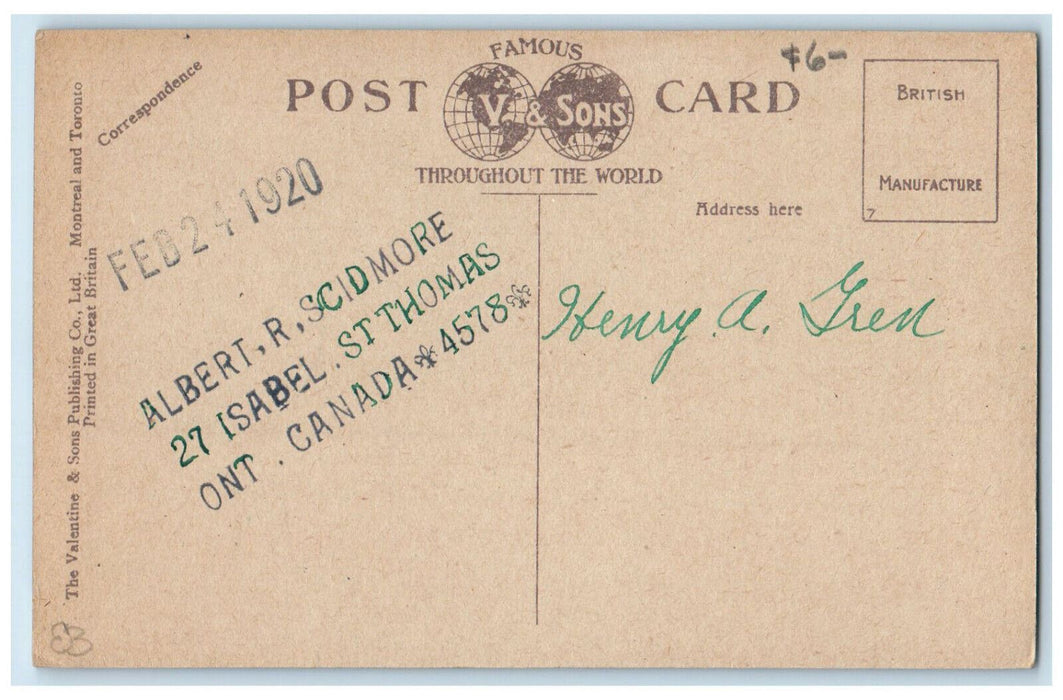 FAMOUS
POST V. & SONS CARD
THROUGHOUT THE WORLD
$6-
BRITISH
MANUFACTURE
7
Correspondence
Address here
The Valentine & Sons Publishing Co., Ltd. Montreal and Toronto
Printed in Great Britain
FEB 24 1920
ALBERT, R, SCIDMORE
27 ISABEL . ST THOMAS
ONT . CANADA * 4578 *
Henry A. Gren